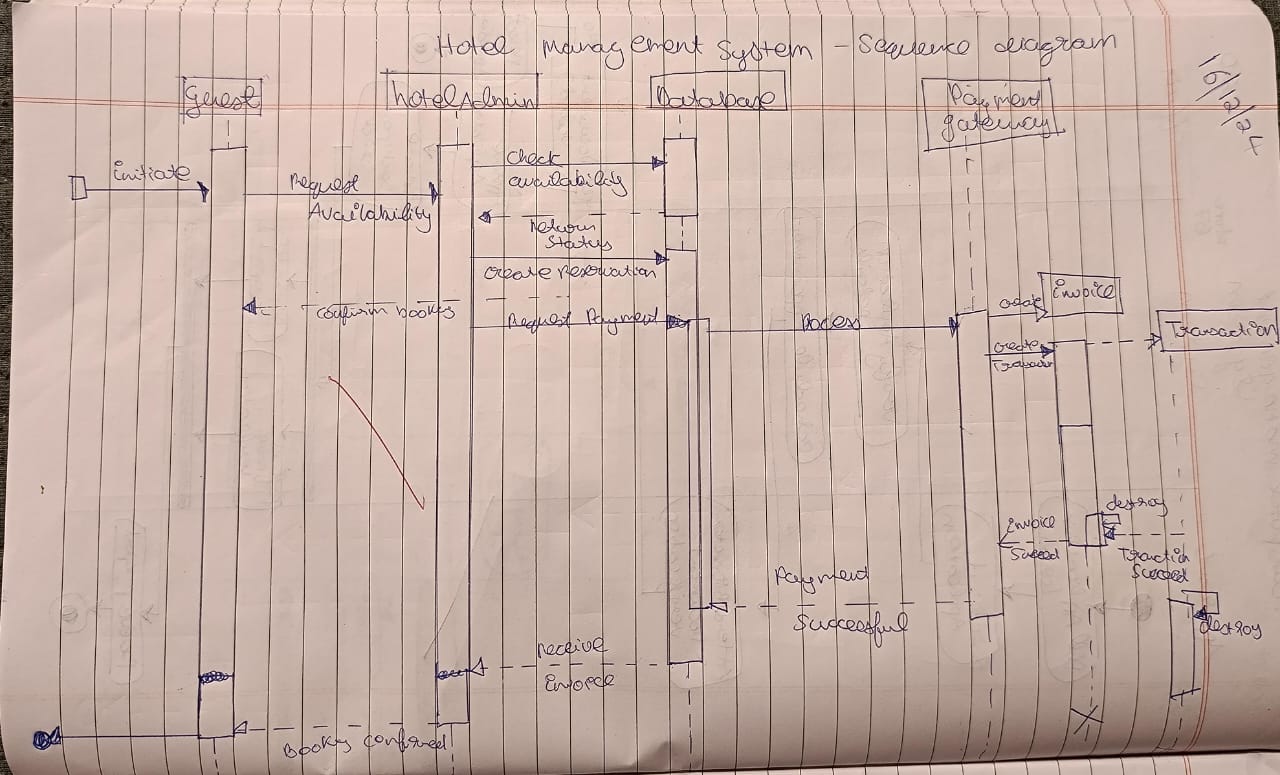 Hotel Management System - Sequence diagram
16/12/24
Guest
hotelAdmin
Database
Payment
gateway
initiate
Request
Availability
check
availability
Return
Status
create Reservation
confirm
Request Payment
Process
invoice
Transaction
create
destroy
invoice
Succeed
Succeed
Payment
Successful
destroy
receive
confirmed